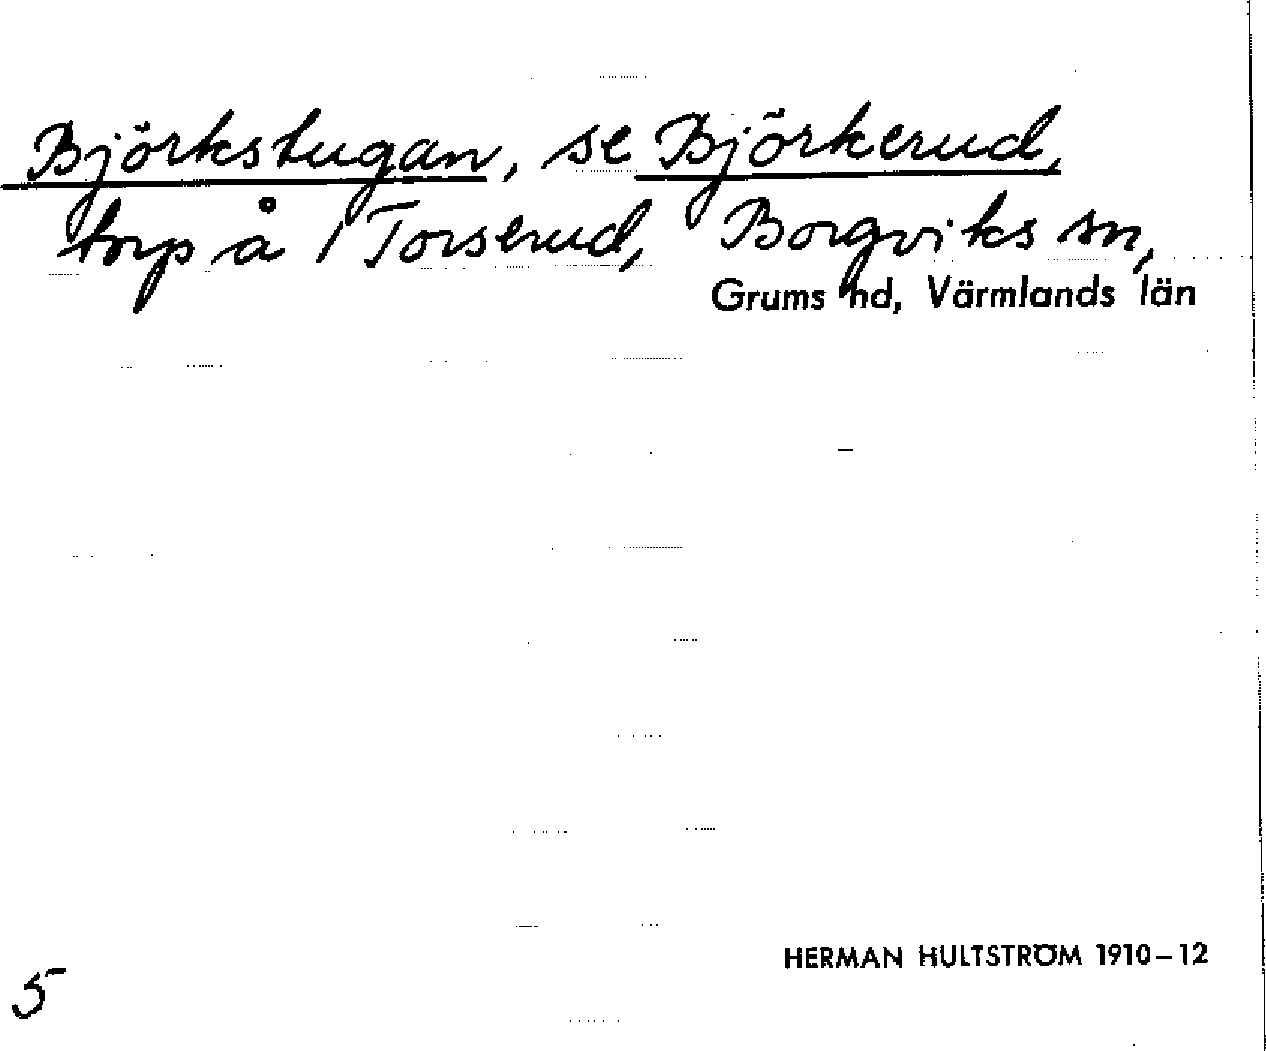 Björkstugan, se Björkerud,
torp å / Torserud, Borgviks sn,
Grums hd, Värmlands län
HERMAN HULTSTRÖM 1910–12
5